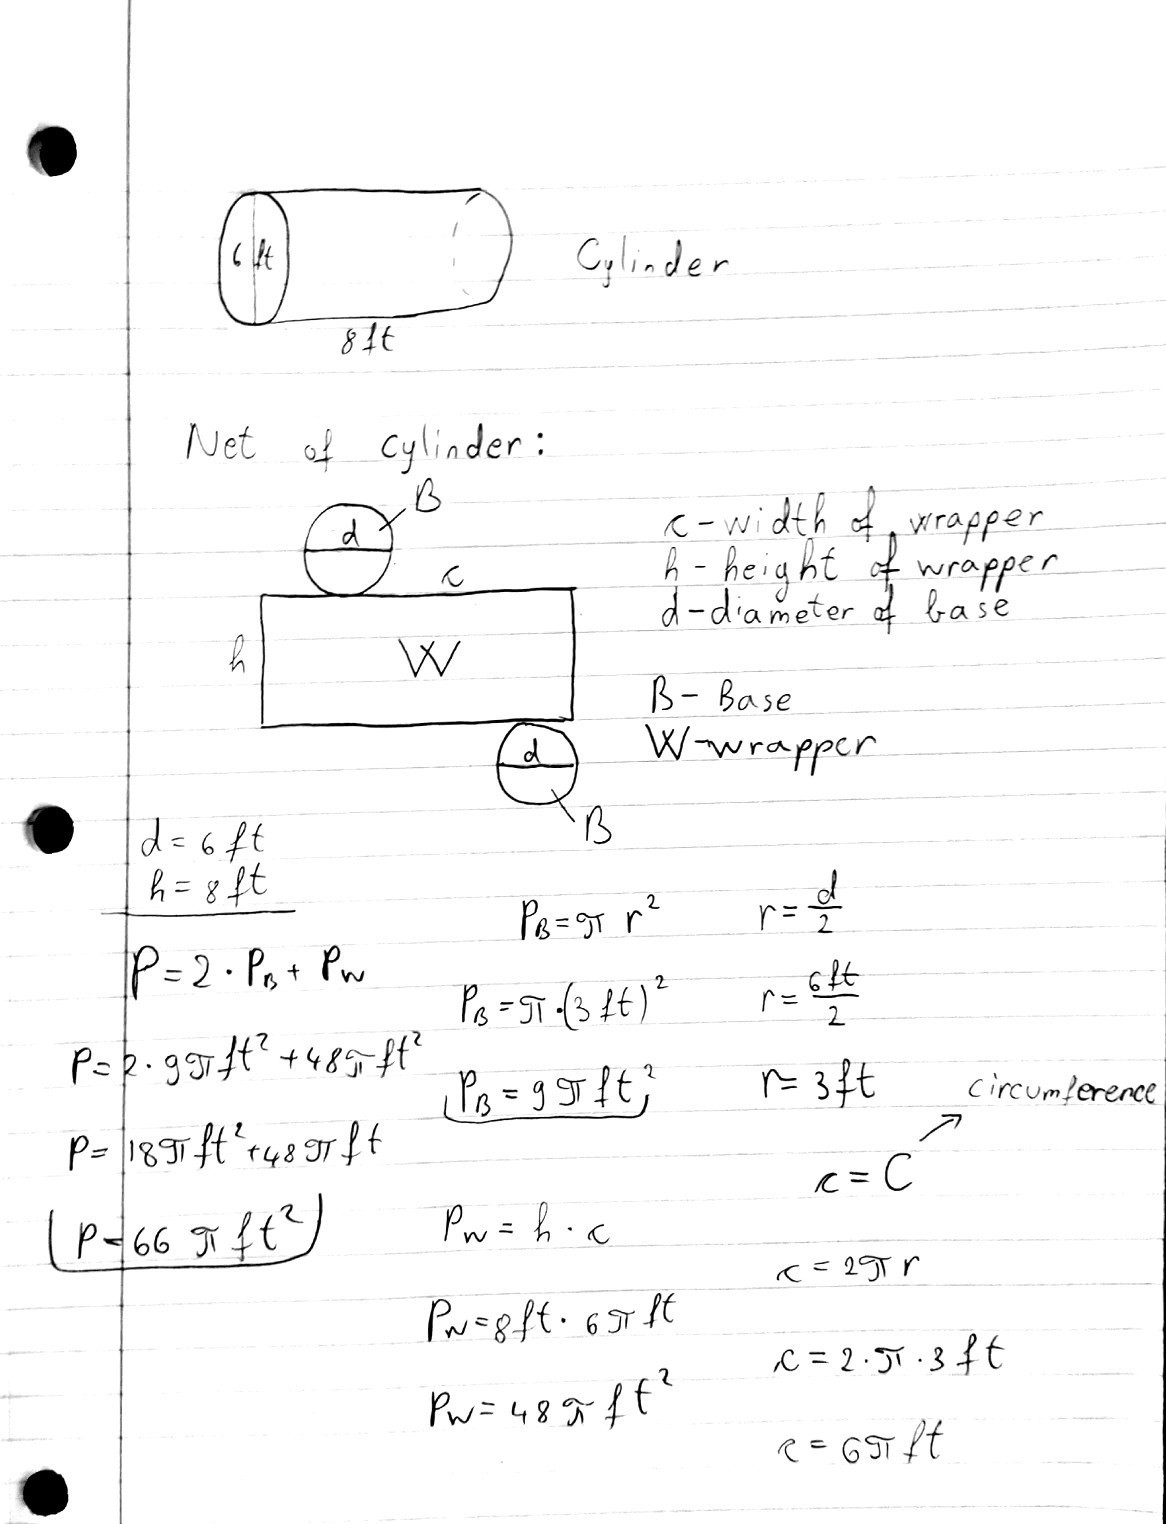 6 ft
Cylinder
8 ft
Net of cylinder:
B
d
c
h
W
d
B
c - width of wrapper
h - height of wrapper
d - diameter of base
B - Base
W - wrapper
d = 6 ft
h = 8 ft
P = 2 · P_B + P_W
P = 2 · 9π ft² + 48π ft²
P = 18π ft² + 48π ft
P = 66 π ft²
P_B = π r²
P_B = π · (3 ft)²
P_B = 9 π ft²
r = d/2
r = 6ft/2
r = 3 ft
circumference
c = C
P_W = h · c
P_W = 8 ft · 6π ft
P_W = 48 π ft²
c = 2π r
c = 2 · π · 3 ft
c = 6π ft